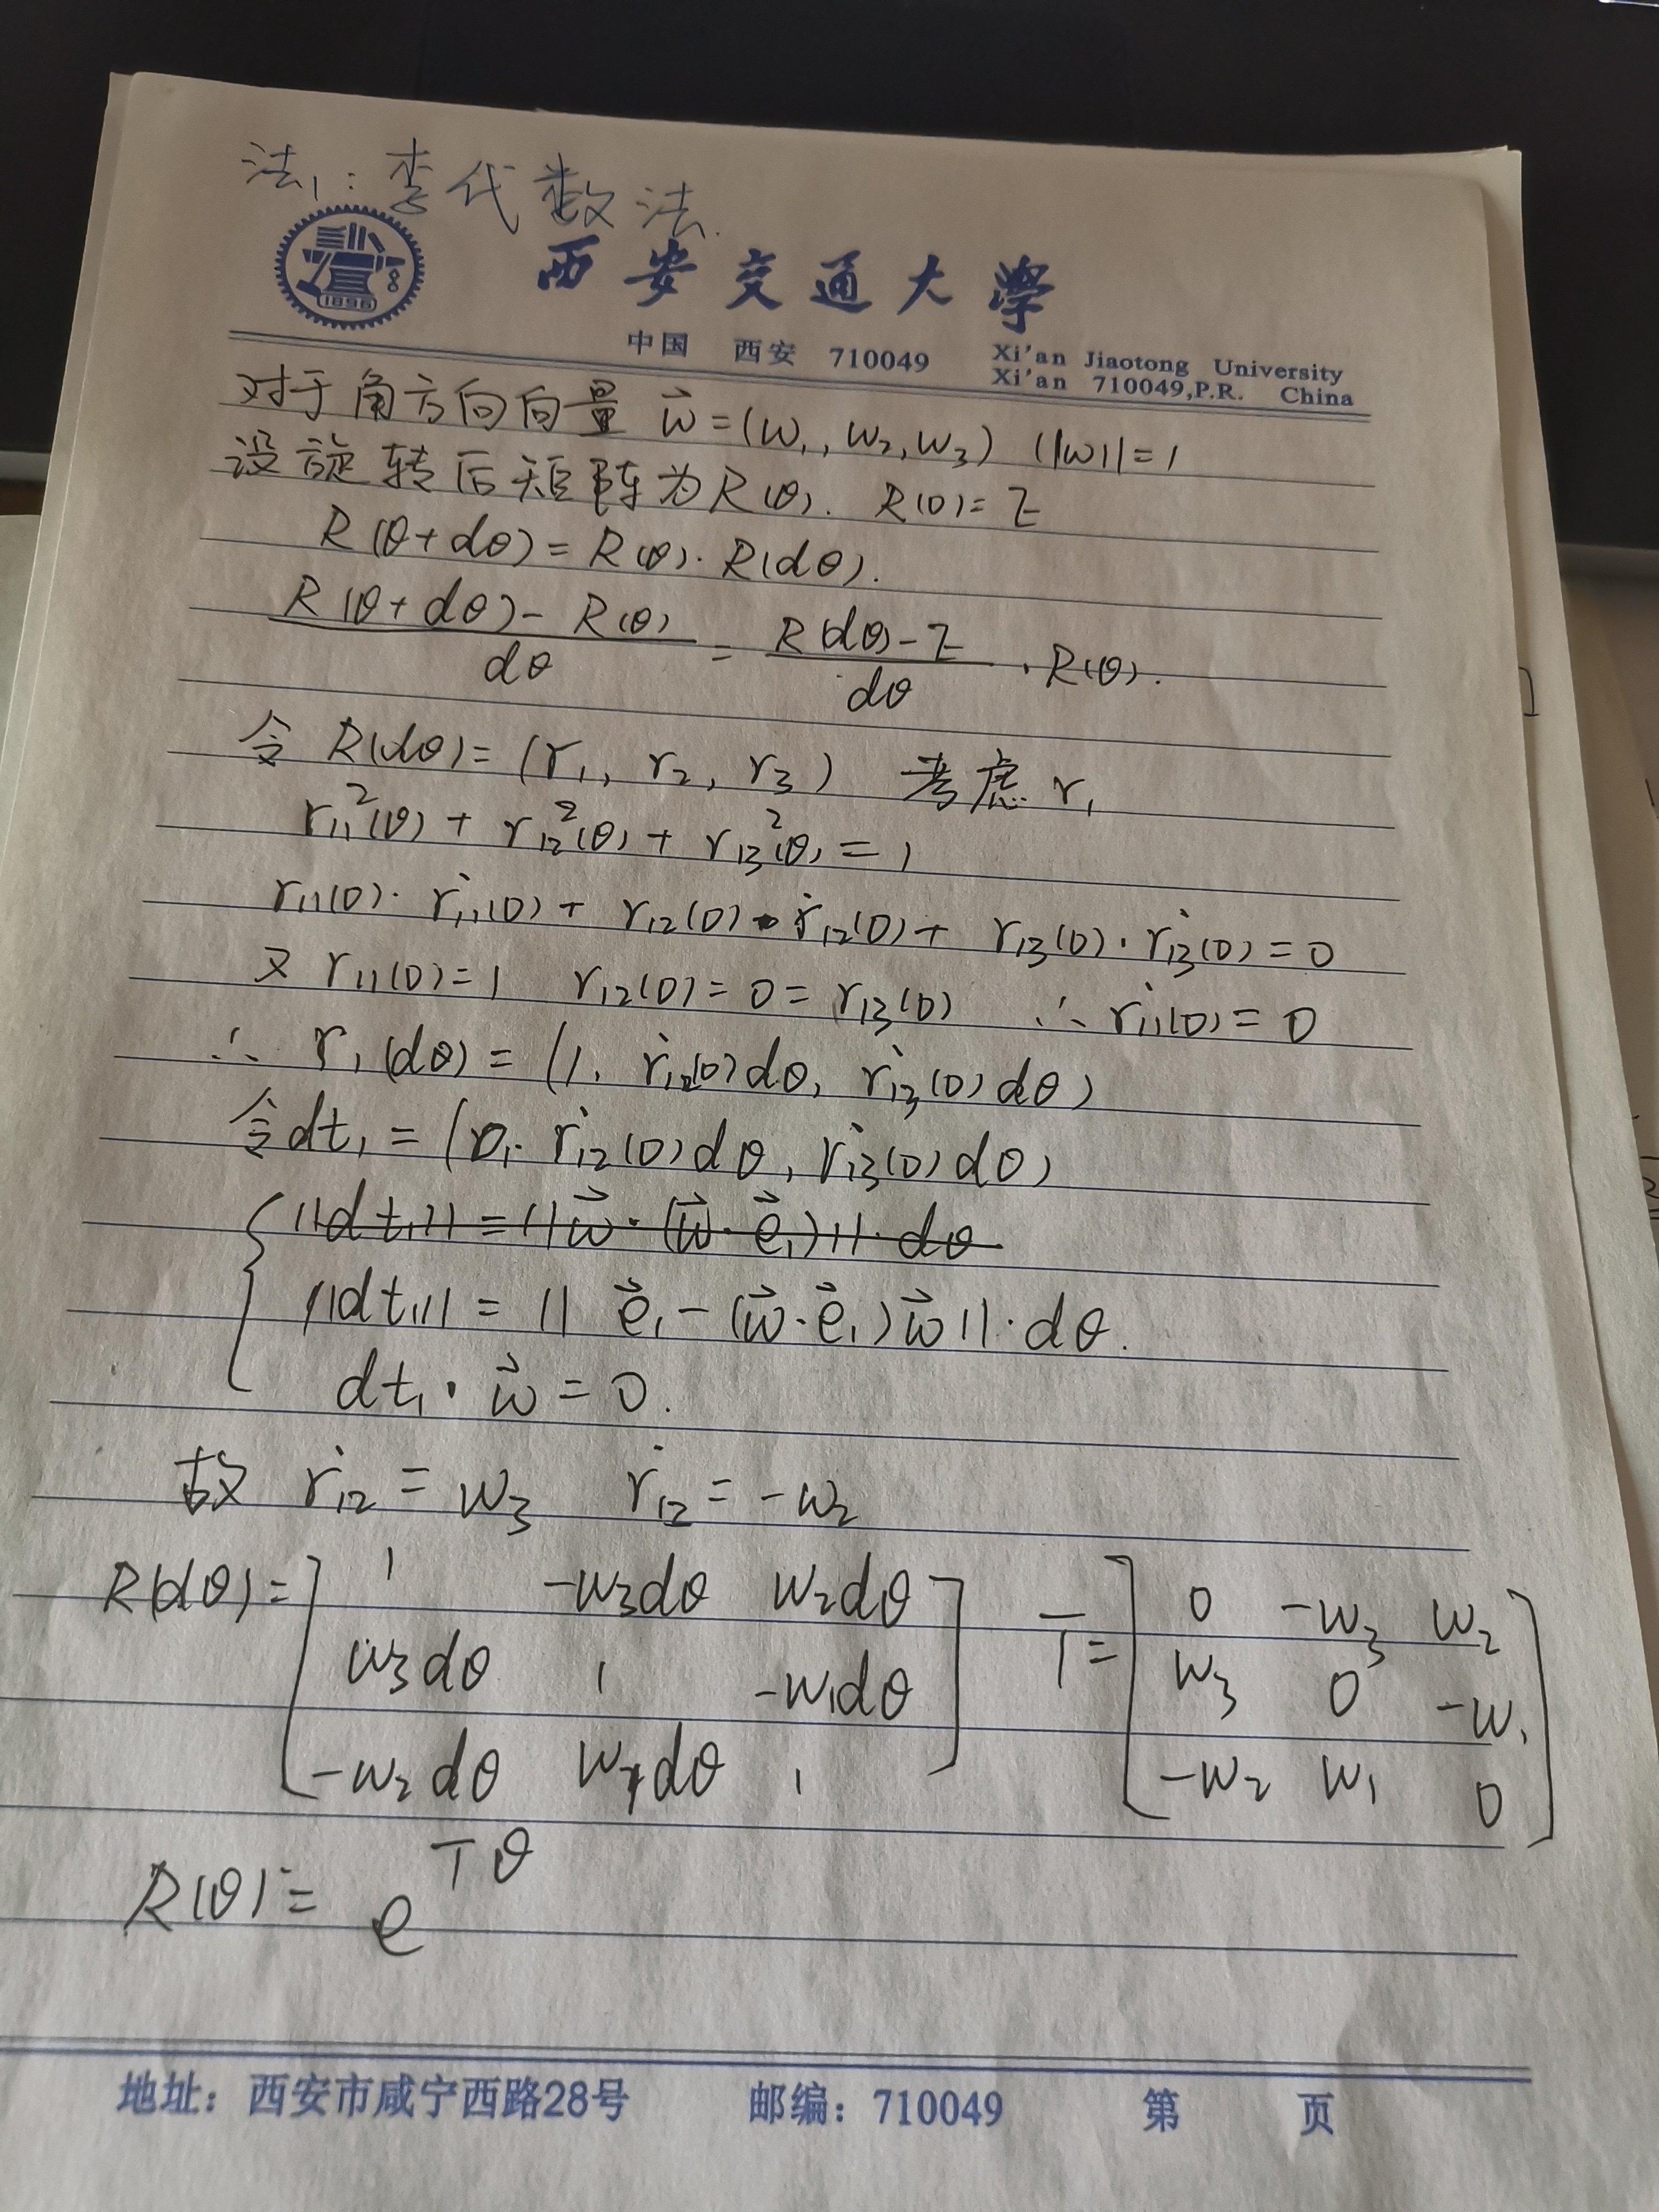 法1：李代数法.
1896
西安交通大學
中国 西安 710049 Xi'an Jiaotong University
Xi'an 710049,P.R. China
对于角方向向量 w⃗=(w₁,w₂,w₃) ||w||=1
设旋转后矩阵为R(θ). R(0)=I
R(θ+dθ)=R(θ)·R(dθ).
(R(θ+dθ)-R(θ))/dθ = (R(dθ)-I)/dθ · R(θ).
令 R(dθ)=(r₁, r₂, r₃) 考虑 r₁
r₁₁²(θ)+r₁₂²(θ)+r₁₃²(θ)=1
r₁₁(0)·ṙ₁₁(0)+r₁₂(0)·ṙ₁₂(0)+r₁₃(0)·ṙ₁₃(0)=0
又 r₁₁(0)=1 r₁₂(0)=0=r₁₃(0) ∴ ṙ₁₁(0)=0
∴ r₁(dθ)=(1, ṙ₁₂(0)dθ, ṙ₁₃(0)dθ)
令dt₁=(0, ṙ₁₂(0)dθ, ṙ₁₃(0)dθ)
{ ||dt₁||=||w⃗·(w⃗·e⃗₁)||·dθ
||dt₁||=||e⃗₁-(w⃗·e⃗₁)w⃗||·dθ.
dt₁·w⃗=0.
故 ṙ₁₂=w₃ ṙ₁₂=-w₂
R(dθ)=[ 1 -w₃dθ w₂dθ T=[ 0 -w₃ w₂
w₃dθ 1 -w₁dθ w₃ 0 -w₁
-w₂dθ w₁dθ 1 ] -w₂ w₁ 0 ]
R(θ)=e^{Tθ}
地址：西安市咸宁西路28号 邮编：710049 第 页